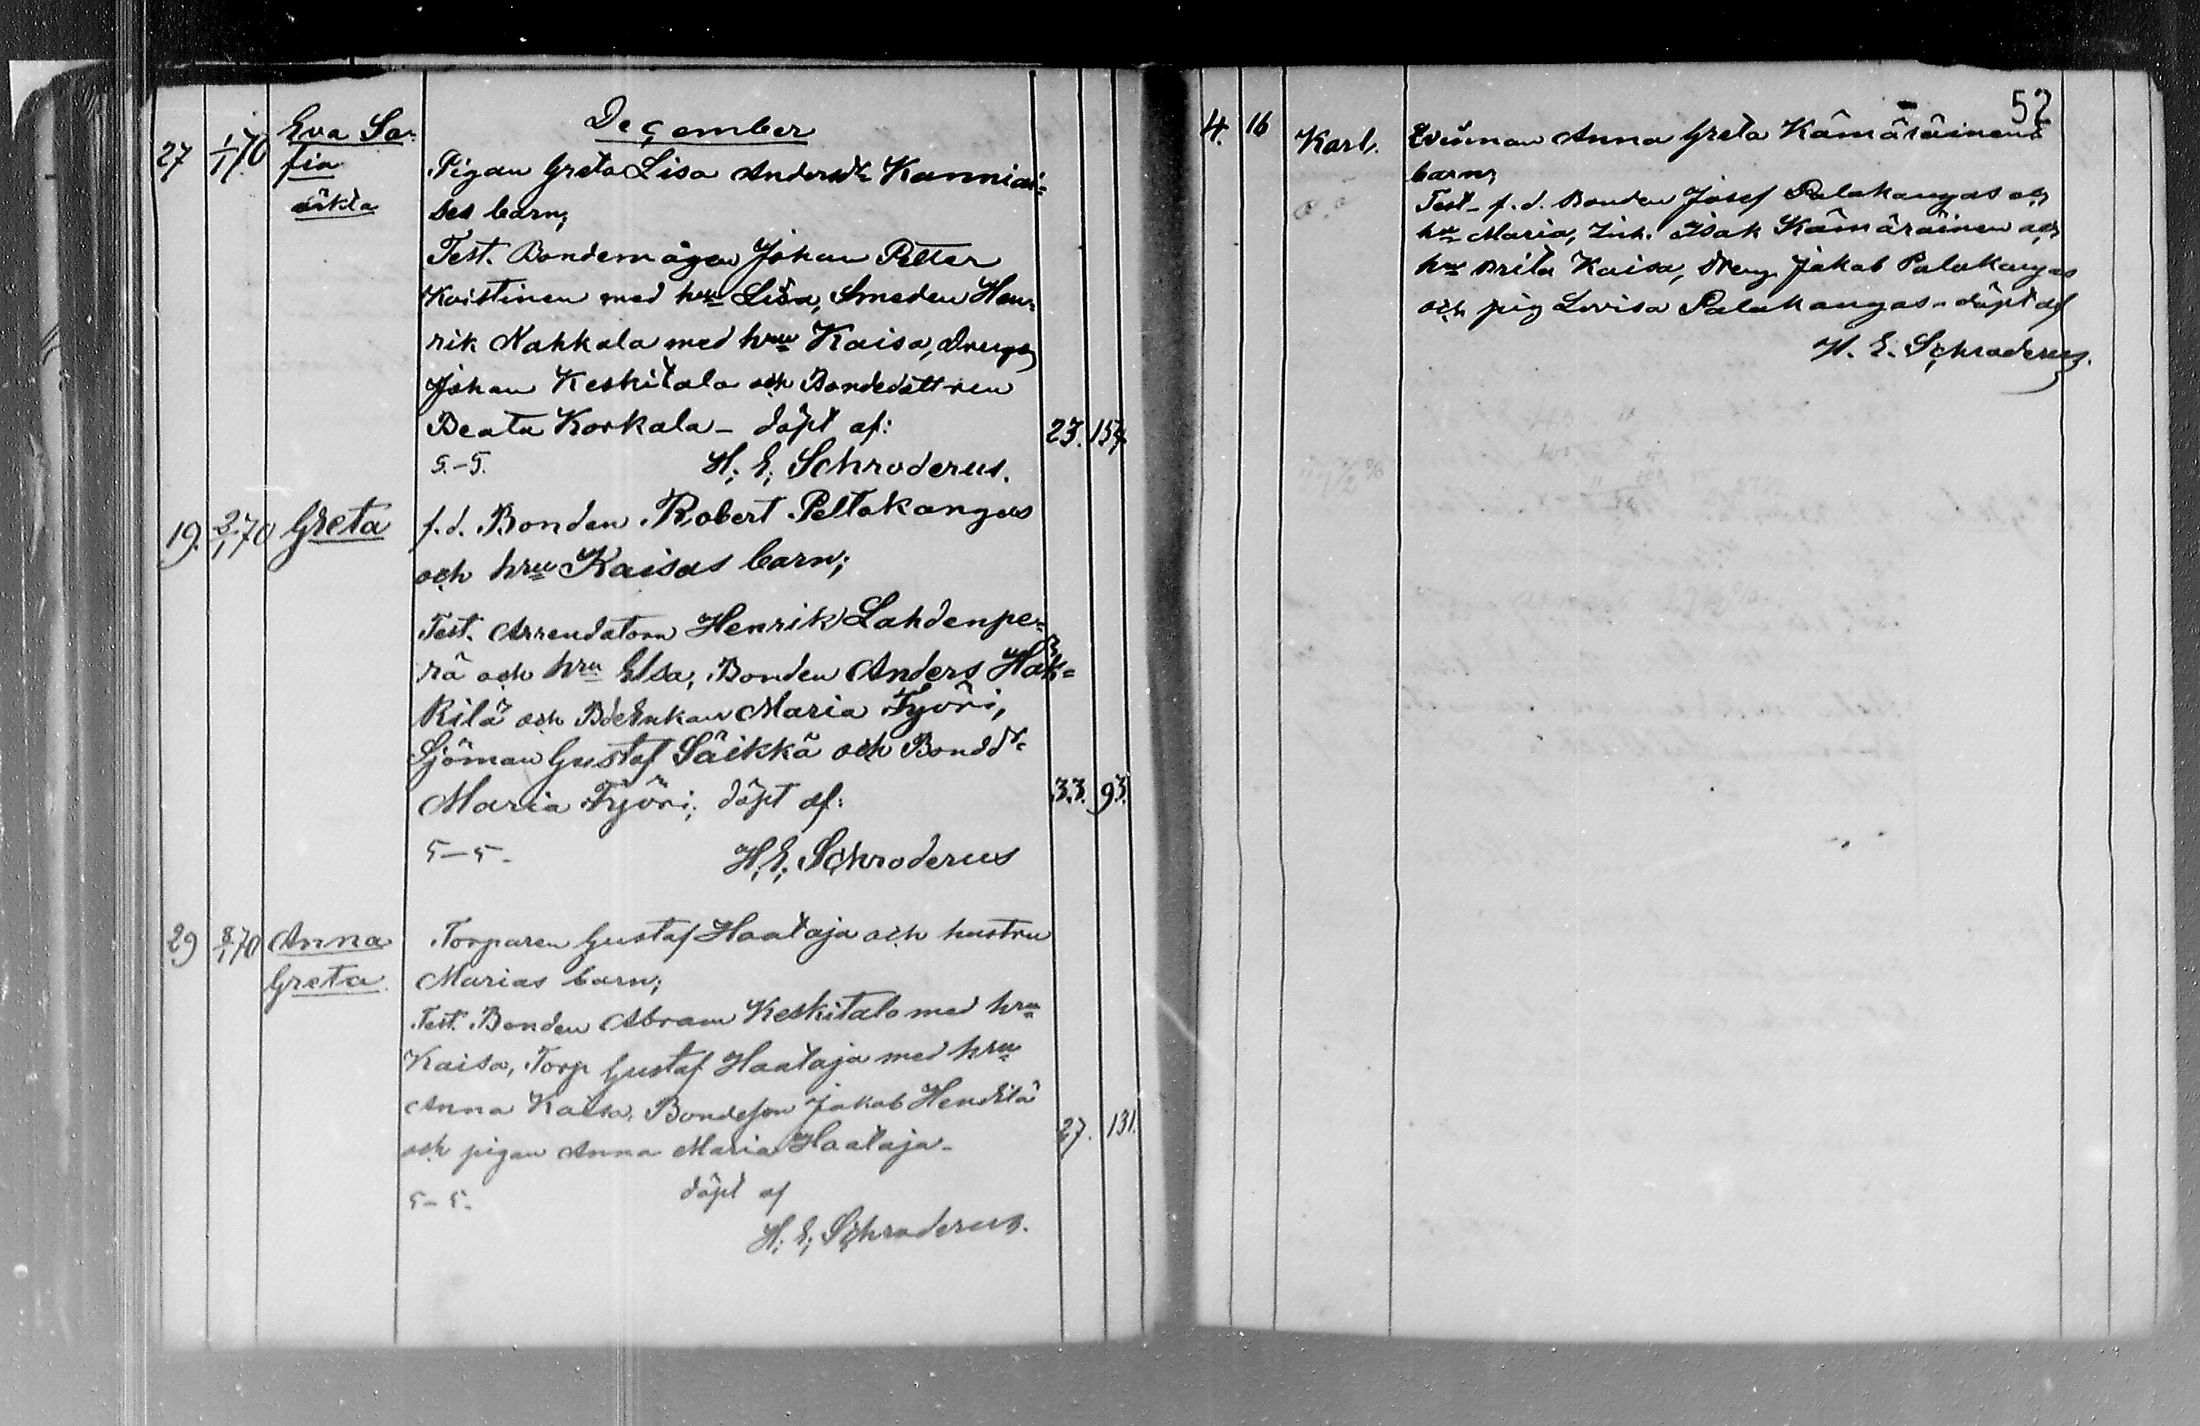 December
27 1/1 70 Eva So-
fia
oäkta
Pigan Greta Lisa Andersdr Kanniai=
ses barn;
Test. Bondemågen Johan Petter
Koistinen med hru Lisa, Smeden Hen-
rik Nahkala med hru Kaisa, Drengen
Johan Keskitalo och Bondedottren
Beata Korkala – döpt af: 23. 154.
5.–5. H. E. Schroderus.
19. 2/1 70 Greta f.d. Bonden Robert Peltokangas
och hru Kaisas barn;
Test. Arrendatorn Henrik Lahdenpe-
rä och hru Elsa, Bonden Anders Häk=
kilä och Bdeenkan Maria Työri,
Sjöman Gustaf Säikkä och Bonddr
Maria Työri; döpt af: 33. 93.
5–5. H. E. Schroderus
29 8/1 70 Anna
Greta
Torparen Gustaf Haataja och hustru
Marias barn;
Test. Bonden Abram Keskitalo med hru
Kaisa, Torp Gustaf Haataja med hru
Anna Kaisa, Bondeson Jakob Henkilä
och pigan Anna Maria Haataja – 27. 131.
5–5. döpt af
H. E. Schroderus.
52
4. 16 Karl. Anna Greta Kämäräinens
barn;
Test – f.d. Bonden Josef Palokangas och
hu Maria, Isak Kämäräinen och
hu Brita Kaisa, Dreng Jakob Palokangas
och pig Lovisa Palokangas – döpt af
H. E. Schroderus.